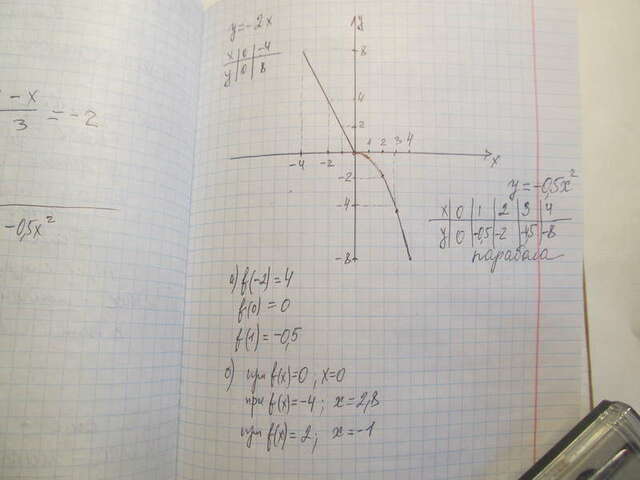 - x
3 = -2
-0,5x²
y = -2x
x | 0 | -4
y | 0 | 8
y
8
4
2
-4 -2 1 2 3 4 x
-2
-4
-8
y = -0,5x²
x | 0 | 1 | 2 | 3 | 4
y | 0 | -0,5 | -2 | -4,5 | -8
парабола
а) f(-2) = 4
f(0) = 0
f(1) = -0,5
б) при f(x)=0, x=0
при f(x)=-4; x=2,8
при f(x)=2; x=-1